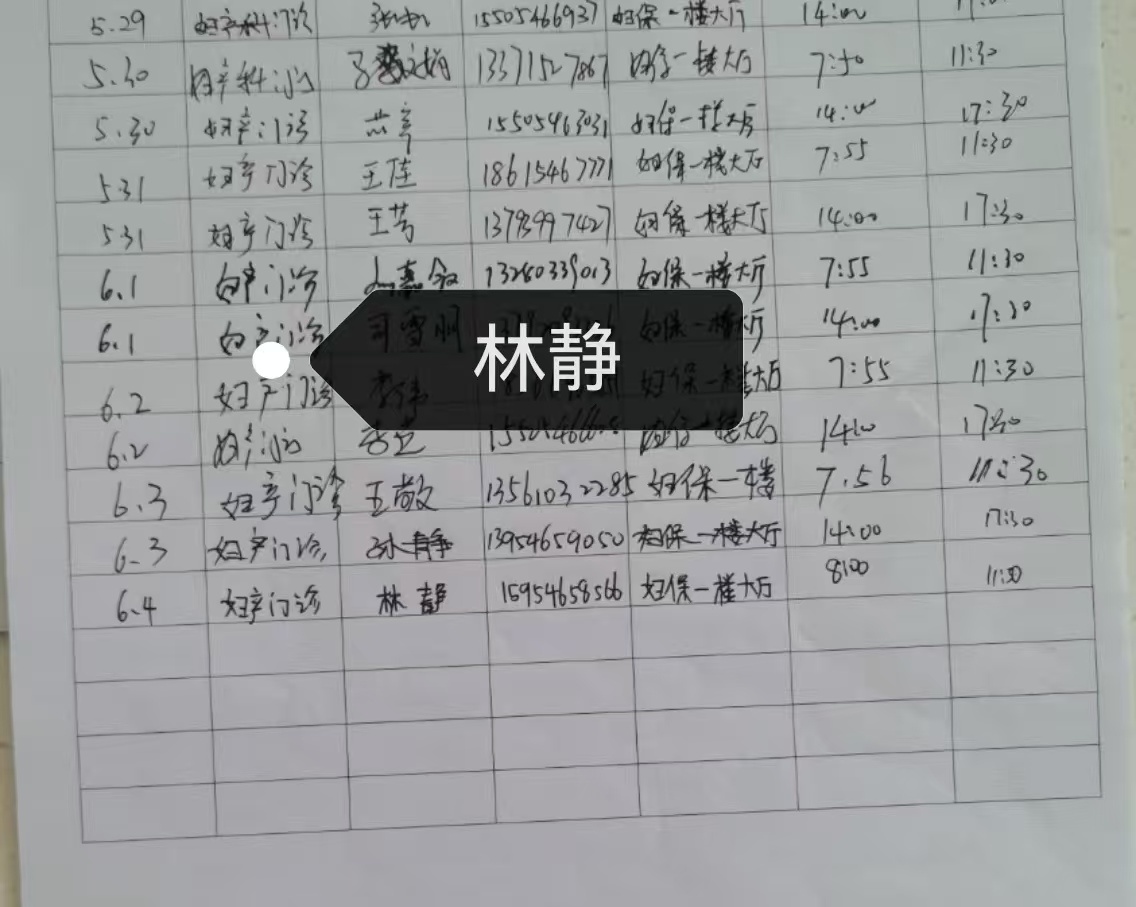 5.29 妇产科门诊 15505466937 妇保一楼大厅 14:00
5.30 妇产科门诊 13371527867 妇保一楼大厅 7:50 11:30
5.30 妇产门诊 15505463031 妇保一楼大厅 14:00 17:30
5.31 妇产门诊 王佳 18615467771 妇保一楼大厅 7:55 11:30
5.31 妇产门诊 王芳 13793997427 妇保一楼大厅 14:00 17:30
6.1 妇产门诊 13280339013 妇保一楼大厅 7:55 11:30
6.1 妇产门诊 司雪明 妇保一楼大厅 14:00 17:30
林静
6.2 妇产门诊 李伟 妇保一楼大厅 7:55 11:30
6.2 妇产门诊 妇保一楼大厅 14:00 17:30
6.3 妇产门诊 王敬 13561032285 妇保一楼 7.56 11:30
6.3 妇产门诊 孙静 13954659050 妇保一楼大厅 14:00 17:30
6.4 妇产门诊 林静 15954658566 妇保一楼大厅 8:00 11:30